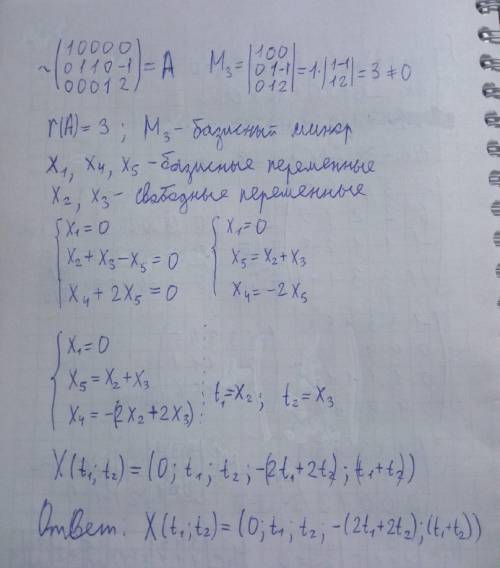 ~(1 0 0 0 0
0 1 1 0 -1
0 0 0 1 2) = A M₃ = |1 0 0
0 1 -1
0 1 2| = 1·|1 -1
1 2| = 3 ≠ 0
r(A) = 3 ; M₃ - базисный минор
x₁, x₄, x₅ - базисные переменные
x₂, x₃ - свободные переменные
{ x₁ = 0 { x₁ = 0
x₂ + x₃ - x₅ = 0 x₅ = x₂ + x₃
x₄ + 2x₅ = 0 x₄ = -2x₅
{ x₁ = 0
x₅ = x₂ + x₃
x₄ = -(2x₂ + 2x₃) ; t₁ = x₂ ; t₂ = x₃
X(t₁; t₂) = (0; t₁; t₂; -(2t₁ + 2t₂); (t₁ + t₂))
Ответ. X(t₁; t₂) = (0; t₁; t₂; -(2t₁ + 2t₂); (t₁ + t₂))